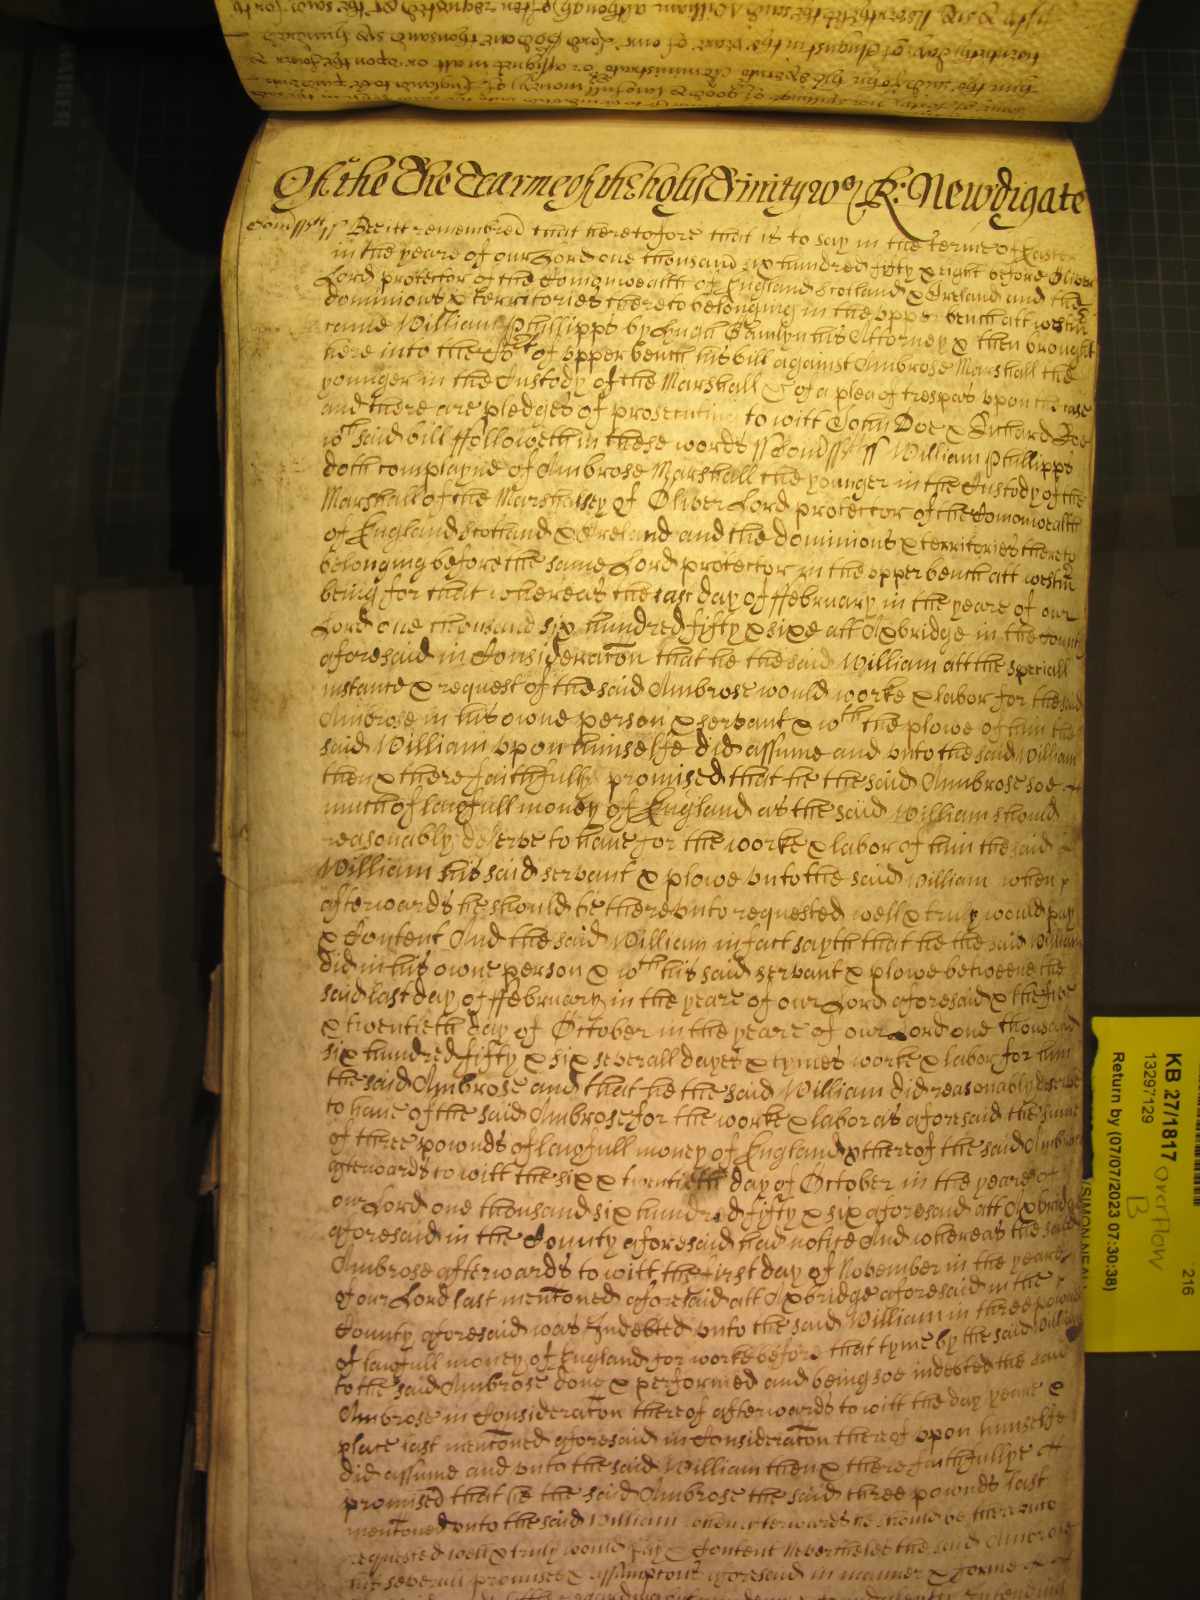 Of the The Tearme of the holy Trinity wo R: Newdigate
Be itt remembred that heretofore that is to say in the Terme of Easter
in the yeare of our Lord one thousand six hundred fifty & eight before Oliver
Lord protector of the Comonwealth of England Scotland & Ireland and the
dominions & territories thereto belonging in the upper bench att westm
came William Phillipps by Hugh Hamlyn his Attorney & then brought
here into the Cort of upper bench his bill against Ambrose Marshall the
younger in the Custody of the Marshall &c of a plea of trespas upon the case
and there are pledges of prosecuting to witt John Doe & Richard Roe
wch said bill ffolloweth in these words ss Somsstt ss William Phillipps
doth complayne of Ambrose Marshall the younger in the Custody of the
Marshall of the Marshalsey of Oliver Lord protector of the Comonwealth
of England Scotland & Ireland and the dominions & territories thereto
belonging before the same Lord protector in the upper bench att westm
being for that whereas the last day of ffebruary in the yeare of our
Lord one thousand six hundred fifty & sixe att Axbridge in the County
aforesaid in Consideracon that he the said William att the speciall
instance & request of the said Ambrose would worke & labor for the said
Ambrose in his owne person & servant & wth the plowe of him the
said William upon himselfe did assume and unto the said William
then & there faithfully promised that he the said Ambrose soe
much of lawfull money of England as the said William should
reasonably deserve to have for the worke & labor of him the said
William his said servant & plowe unto the said William when
afterwards he should be thereunto requested well & truly would pay
& Content And the said William in fact sayth that he the said William
did in his owne person & wth his said servant & plowe betweene the
said last day of ffebruary in the yeare of our Lord aforesaid & the five
& twentieth day of October in the yeare of our Lord one thousand
six hundred fifty & six severall dayes & tymes worke & labor for him
the said Ambrose and that he the said William did reasonably deserve
to have of the said Ambrose for the worke & labor as aforesaid the sume
of three pownds of lawfull money of England & thereof the said Ambrose
afterwards to witt the six & twentieth day of October in the yeare of
our Lord one thousand six hundred fifty & six aforesaid att Axbridge
aforesaid in the County aforesaid had notice And whereas the said
Ambrose afterwards to witt the first day of November in the yeare
of our Lord last mencioned aforesaid att Axbridge aforesaid in the
County aforesaid was Indebted unto the said William in three pownds
of lawfull money of England for worke before that tyme by the said William
to the said Ambrose done & performed and being soe indebted the said
Ambrose in Consideracon thereof afterwards to witt the day yeare &
place last mentoned aforesaid in Consideracon thereof upon himselfe
did assume and unto the said William then & there faithfullye
promised that he the said Ambrose the said three pownds last
mentoned unto the said William when afterwards he should be thereunto
requested well & truly would pay & Content Neverthelesse the said Ambrose
his severall promises & assumptons aforesaid in manner & forme
KB 27/1817
Overflow
B
13297129
216
Return by (07/07/2023 07:30:38)